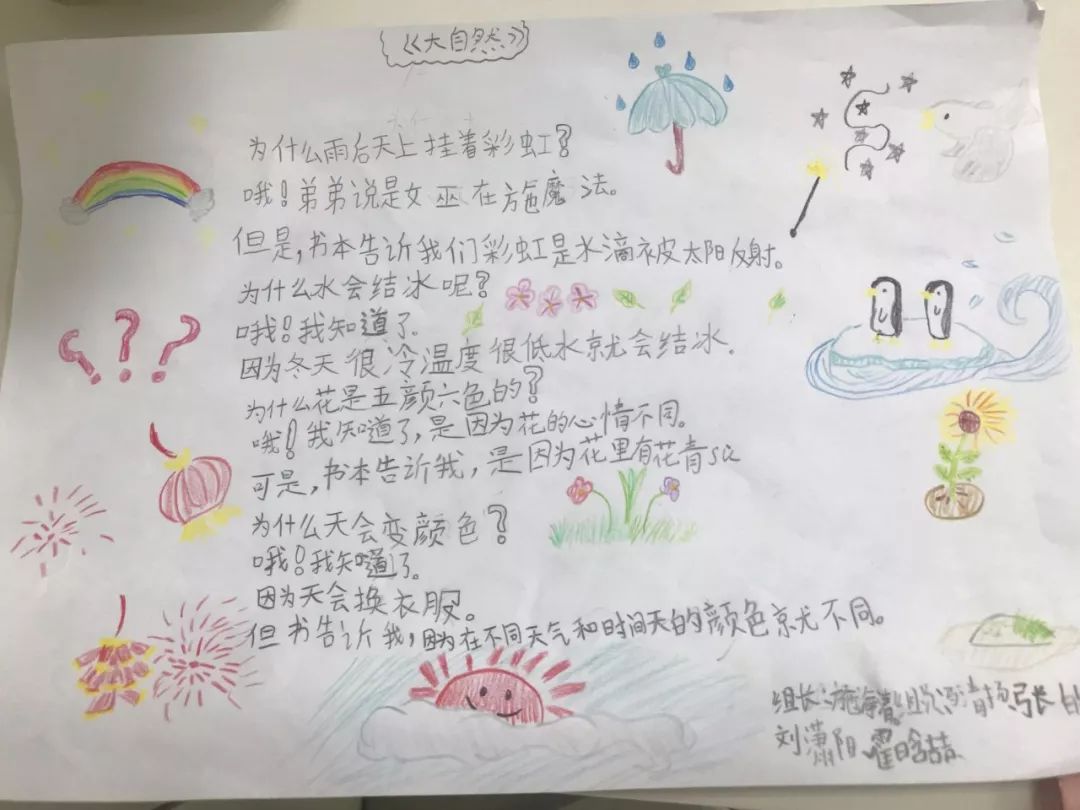 《大自然》
为什么雨后天上挂着彩虹?
哦!弟弟说是女巫在施魔法。
但是,书本告诉我们彩虹是水滴被太阳反射。
为什么水会结冰呢?
哦!我知道了.
因为冬天很冷温度很低水就会结冰.
为什么花是五颜六色的?
哦!我知道了,是因为花的心情不同。
可是,书本告诉我,是因为花里有花青su
为什么天会变颜色?
哦!我知道了。
因为天会换衣服。
但书告诉我,因为在不同天气和时间天的颜色就不同。
组长:施
刘潇阳 霍晗喆